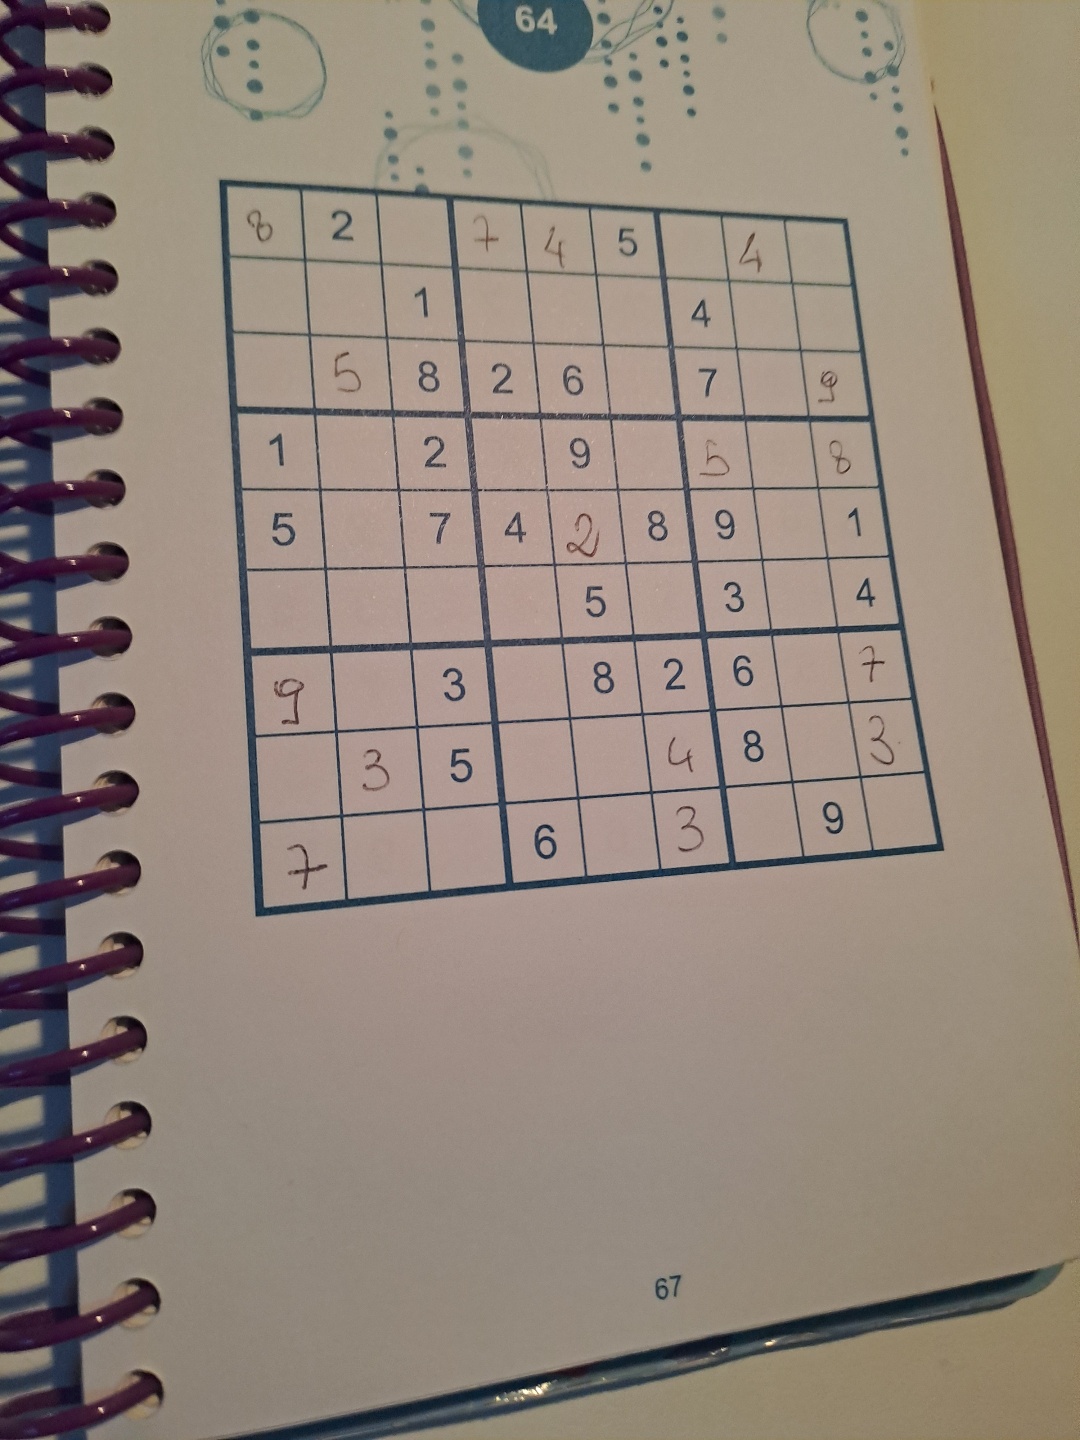 64
8 2 7 4 5 4
1 4
5 8 2 6 7 9
1 2 9 5 8
5 7 4 2 8 9 1
5 3 4
9 3 8 2 6 7
3 5 4 8 3
7 6 3 9
67